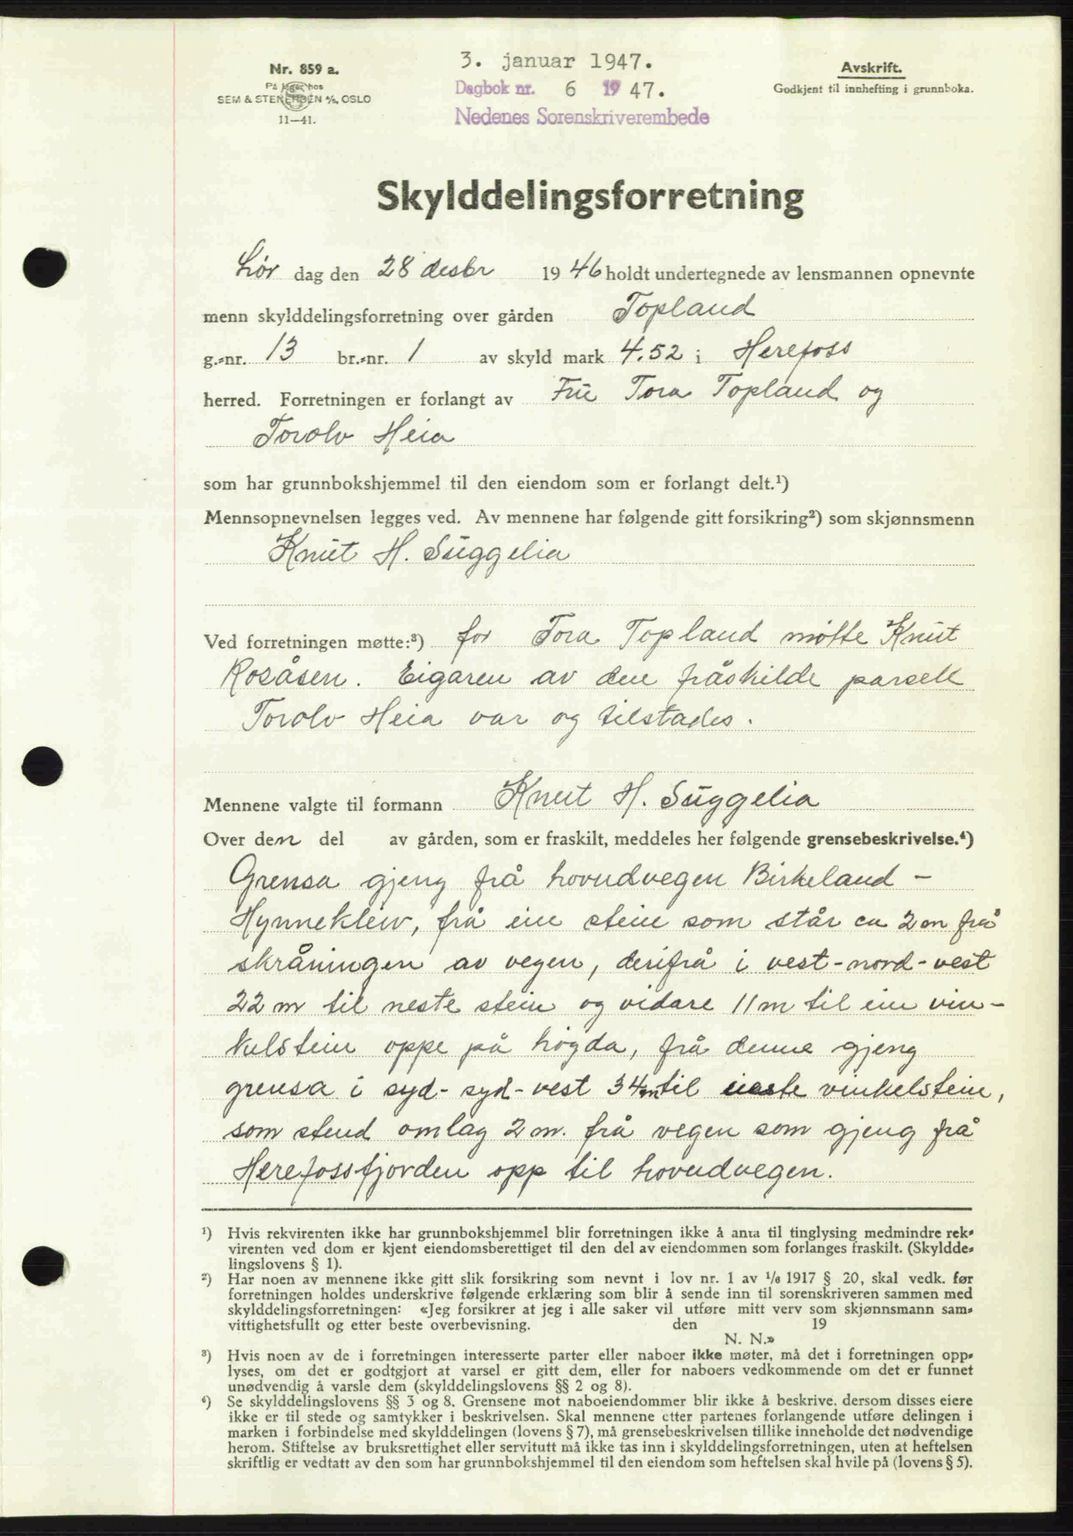 3. januar 1947.
Nr. 859 a.
På lager hos
SEM & STENERSEN A/S, OSLO
11—41.
Dagbok nr. 6 1947.
Nedenes Sorenskriverembede
Avskrift.
Godkjent til innhefting i grunnboka.
Skylddelingsforretning
Lør dag den 28 desbr 1946 holdt undertegnede av lensmannen opnevnte
menn skylddelingsforretning over gården Topland
g.-nr. 13 br.-nr. 1 av skyld mark 4.52 i Herefoss
herred. Forretningen er forlangt av Fru Tora Topland og
Torolv Heia
som har grunnbokshjemmel til den eiendom som er forlangt delt.¹)
Mennsopnevnelsen legges ved. Av mennene har følgende gitt forsikring²) som skjønnsmenn
Knut H. Suggelia
Ved forretningen møtte:³) for Tora Topland møtte Knut
Rosåsen. Eigaren av den fråskilde parsell
Torolv Heia var og tilstades.
Mennene valgte til formann Knut H. Suggelia
Over den del av gården, som er fraskilt, meddeles her følgende grensebeskrivelse.⁴)
Grensa gjeng frå hovudvegen Birkeland -
Hynnekleiv, frå ein stein som står ca 2 m frå
skråningen av vegen, derifrå i vest-nord-vest
22 m til neste stein og vidare 11 m til ein vin-
kelstein oppe på høgda, frå denne gjeng
grensa i syd-syd-vest 34 m til neste vinkelstein,
som stend omlag 2 m. frå vegen som gjeng frå
Herefossfjorden opp til hovudvegen.
¹) Hvis rekvirenten ikke har grunnbokshjemmel blir forretningen ikke å anta til tinglysing medmindre rek-
virenten ved dom er kjent eiendomsberettiget til den del av eiendommen som forlanges fraskilt. (Skyldde-
lingslovens § 1).
²) Har noen av mennene ikke gitt slik forsikring som nevnt i lov nr. 1 av ¹/₆ 1917 § 20, skal vedk. før
forretningen holdes underskrive følgende erklæring som blir å sende inn til sorenskriveren sammen med
skylddelingsforretningen: «Jeg forsikrer at jeg i alle saker vil utføre mitt verv som skjønnsmann sam-
vittighetsfullt og etter beste overbevisning. den 19
N. N.»
³) Hvis noen av de i forretningen interesserte parter eller naboer ikke møter, må det i forretningen opp-
lyses, om det er godtgjort at varsel er gitt dem, eller for naboers vedkommende om det er funnet
unødvendig å varsle dem (skylddelingslovens §§ 2 og 8).
⁴) Se skylddelingslovens §§ 3 og 8. Grensene mot naboeiendommer blir ikke å beskrive, dersom disses eiere
ikke er til stede og samtykker i beskrivelsen. Skal mennene etter partenes forlangende utføre delingen i
marken i forbindelse med skylddelingen (lovens § 7), må grensebeskrivelsen tillike inneholde det nødvendige
herom. Stiftelse av bruksrettighet eller servitutt må ikke tas inn i skylddelingsforretningen, uten at heftelsen
skriftlig er vedtatt av den som har grunnbokshjemmel til den eiendom som heftelsen skal hvile på (lovens § 5).